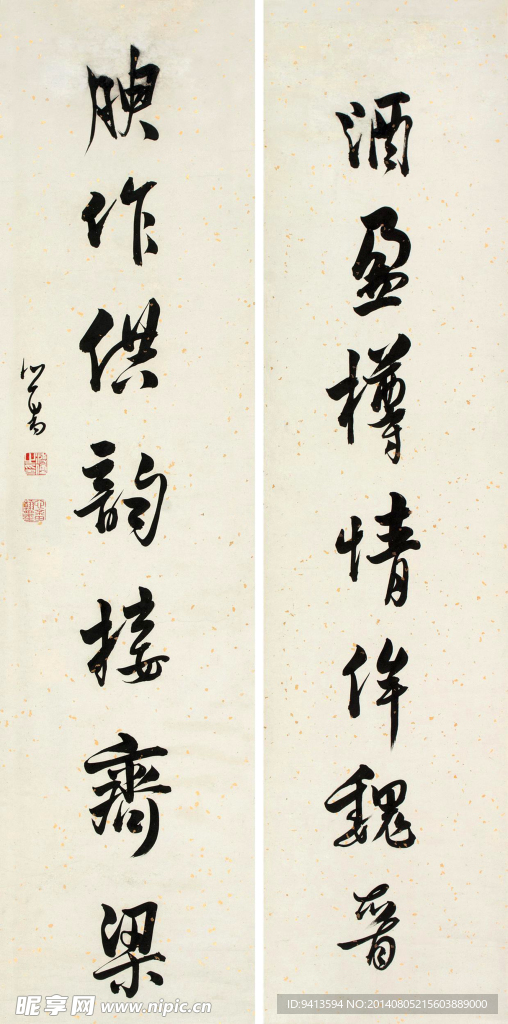 酒盈樽情侔魏晉
腴作供韵接齊梁
心畬
昵享网 www.nipic.cn
ID:9413594 NO:20140805215603889000